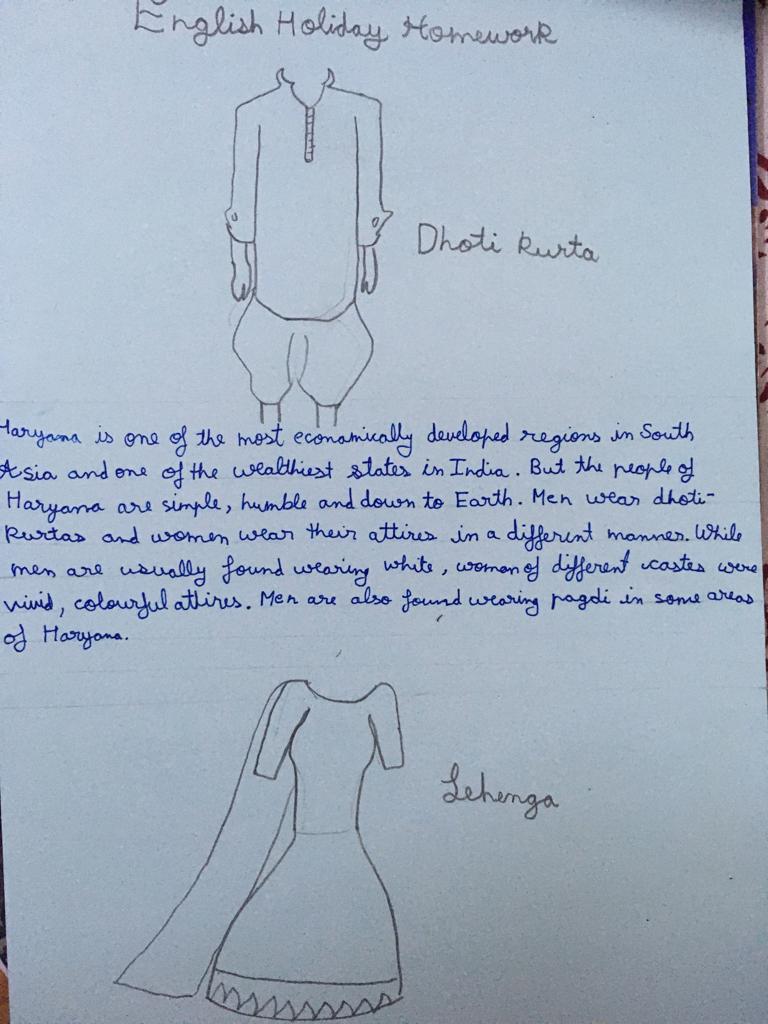 English Holiday Homework
Dhoti Kurta
Haryana is one of the most economically developed regions in South
Asia and one of the wealthiest states in India. But the people of
Haryana are simple, humble and down to Earth. Men wear dhoti-
kurtas and women wear their attires in a different manner. While
men are usually found wearing white, women of different castes were
vivid, colourful attires. Men are also found wearing pagdi in some areas
of Haryana.
Lehenga